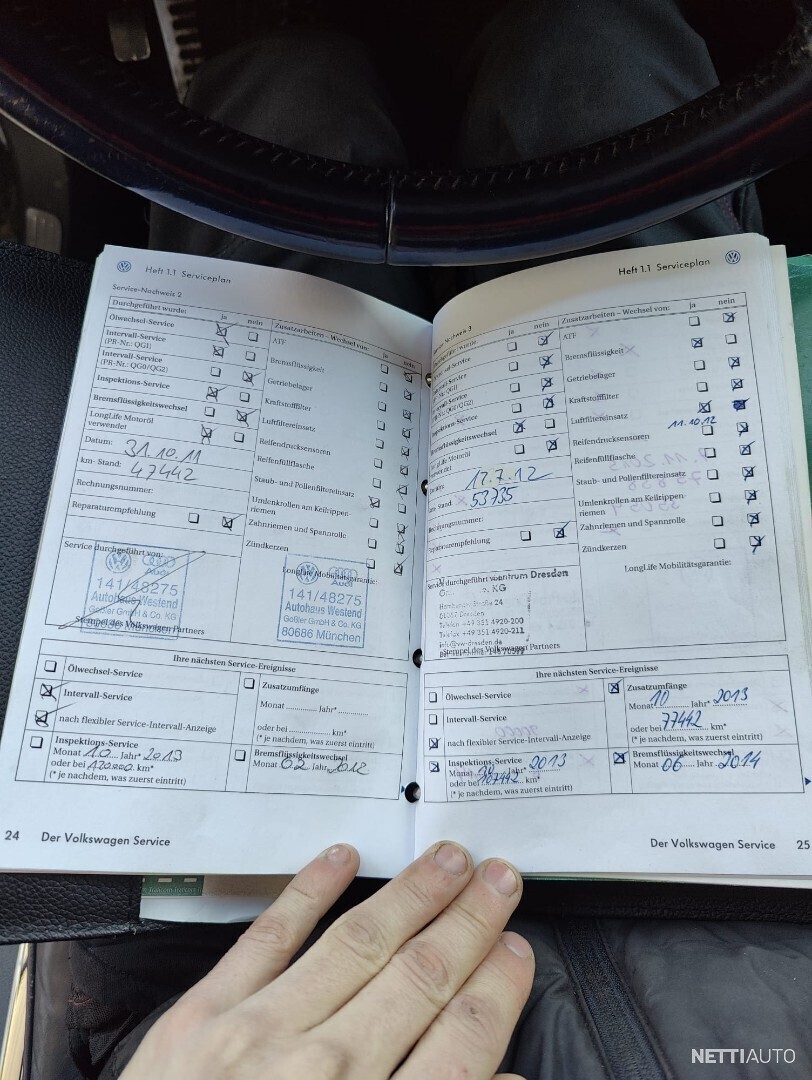 Heft 1.1 Serviceplan
Service-Nachweis 2
Durchgeführt wurde: ja nein
Ölwechsel-Service
Intervall-Service
(PR-Nr.: QG1)
Intervall-Service
(PR-Nr.: QG0/QG2)
Inspektions-Service
Bremsflüssigkeitswechsel
LongLife Motoröl
verwendet
Datum: 31.10.11
km-Stand: 47442
Rechnungsnummer:
Reparaturempfehlung
Service durchgeführt von:
141/48275
Autohaus Westend
Goßler GmbH & Co. KG
80686 München
Stempel des Volkswagen Partners
Zusatzarbeiten – Wechsel von: ja nein
ATF
Bremsflüssigkeit
Getriebelager
Kraftstofffilter
Luftfiltereinsatz
Reifendrucksensoren
Reifenfüllflasche
Staub- und Pollenfiltereinsatz
Umlenkrollen am Keilrippen-
riemen
Zahnriemen und Spannrolle
Zündkerzen
LongLife Mobilitätsgarantie:
Audi
141/48275
Autohaus Westend
Goßler GmbH & Co. KG
80686 München
Ihre nächsten Service-Ereignisse
Ölwechsel-Service
Intervall-Service
nach flexibler Service-Intervall-Anzeige
Inspektions-Service
Monat 10 Jahr* 2013
oder bei 120000 km*
(* je nachdem, was zuerst eintritt)
Zusatzumfänge
Monat Jahr*
oder bei km*
(* je nachdem, was zuerst eintritt)
Bremsflüssigkeitswechsel
Monat 02 Jahr 2012
24 Der Volkswagen Service
Heft 1.1 Serviceplan
Nachweis 3
ja nein
Inspektions-Service
Bremsflüssigkeitswechsel
12.7.12
Stand: 53735
Rechnungsnummer:
Reparaturempfehlung
Service durchgeführt von
zentrum Dresden
KG
Straße 24
81037 Dresden
Telefon +49 351 4920-200
Telefax +49 351 4920-211
info@vw-dresden.de
Stempel des Volkswagen Partners
Zusatzarbeiten – Wechsel von: ja nein
ATF
Bremsflüssigkeit
Getriebelager
Kraftstofffilter
Luftfiltereinsatz
11.10.12
Reifendrucksensoren
Reifenfüllflasche
Staub- und Pollenfiltereinsatz
Umlenkrollen am Keilrippen-
riemen
Zahnriemen und Spannrolle
Zündkerzen
LongLife Mobilitätsgarantie:
Ihre nächsten Service-Ereignisse
Ölwechsel-Service
Intervall-Service
nach flexibler Service-Intervall-Anzeige
Inspektions-Service
Monat Jahr* 2013
oder bei 107442 km*
(* je nachdem, was zuerst eintritt)
Zusatzumfänge
Monat 10 Jahr* 2013
oder bei 77442 km*
(* je nachdem, was zuerst eintritt)
Bremsflüssigkeitswechsel
Monat 06 Jahr 2014
Der Volkswagen Service 25
NETTIAUTO